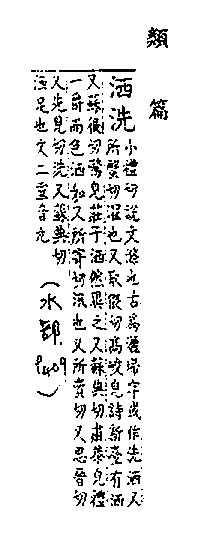 類篇
洒洗
小禮切說文滌也古爲灑埽字或作洗洒又
所切也又取猥切高峻皃詩新臺有洒
又蘇很切驚皃莊子洒然異之又蘇典切肅恭皃禮
一爵而色洒如又所寄切汛也又所賣切又思晉切
又先見切洗又蘇典切
洒足也文二重音九
(水部 P409)